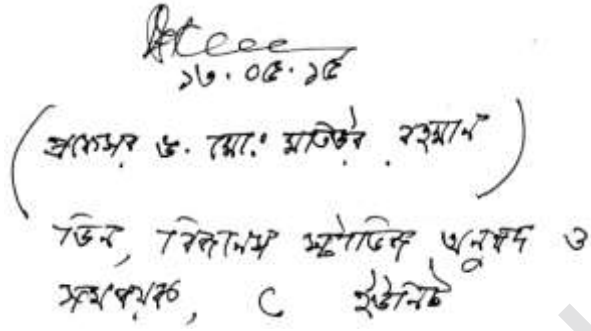 ১৩.০৫.১৫
(প্রফেসর ড. মোঃ মতিউর রহমান)
ডিন, বিজনেস স্টাডিজ অনুষদ ও
সমন্বয়ক, C ইউনিট